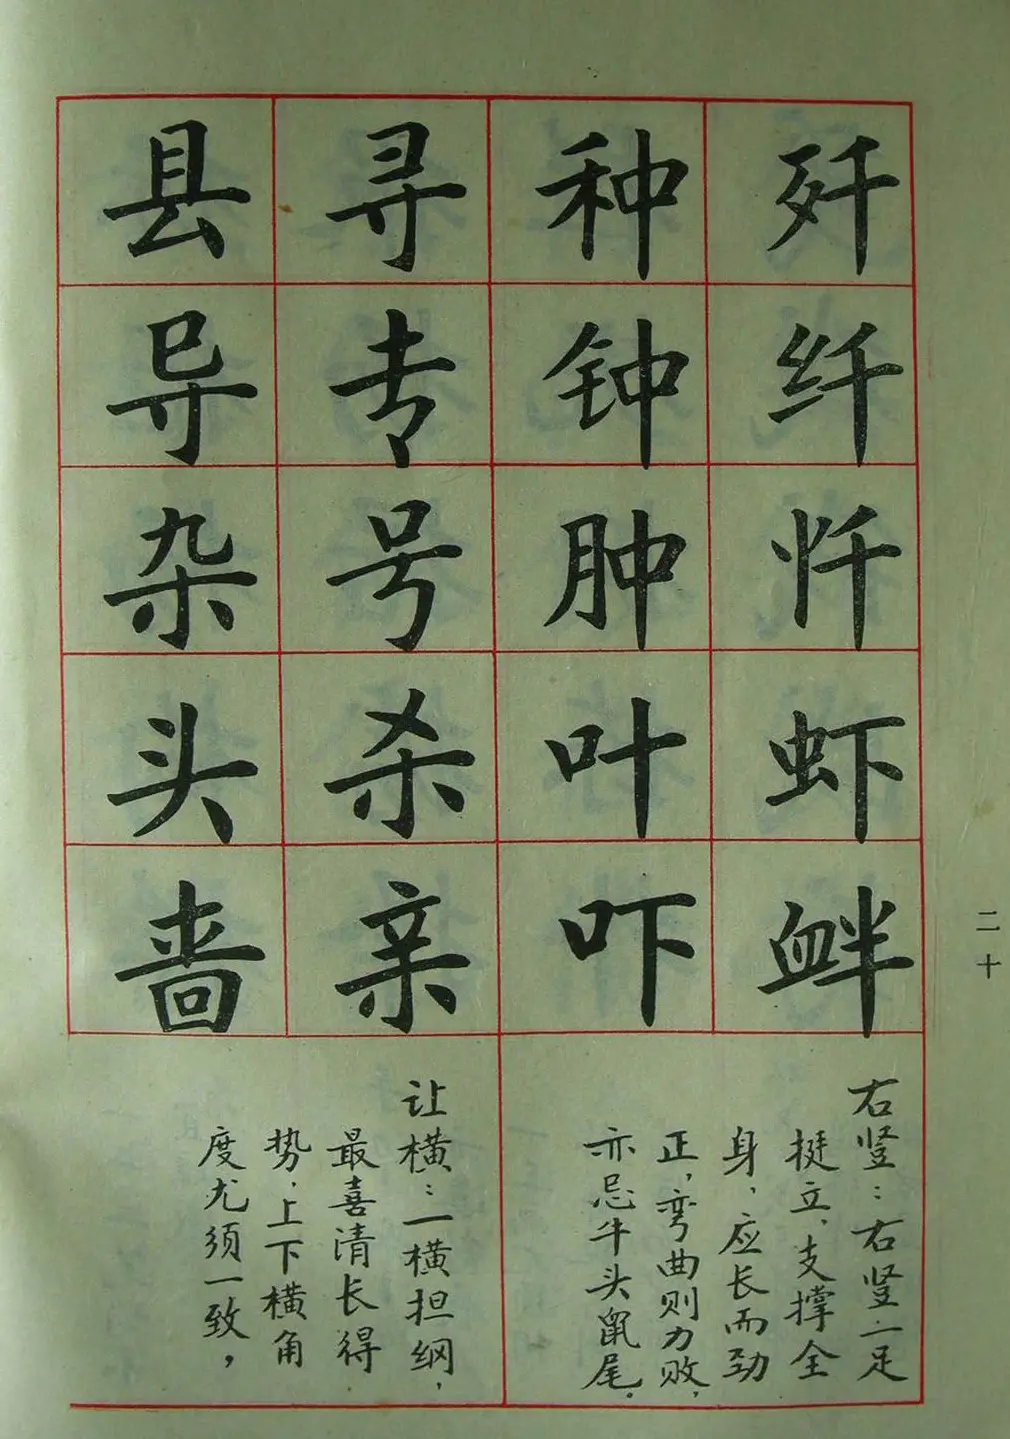 歼纤忏虾衅
种钟肿叶吓
寻专号杀亲
县导杂头啬
右竖：右竖一足
挺立、支撑全
身，应长而劲
正，弯曲则力败，
亦忌牛头鼠尾。
让横：一横担纲，
最喜清长得
势，上下横角
度尤须一致，
二十